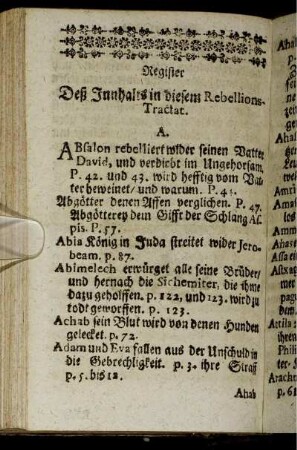 Register
Deß Innhalts in diesem Rebellions-
Tractat.
A.
ABsalon rebelliert wider seinen Vatter
David, und verdirbt im Ungehorsam.
P. 42. und 43. wird hefftig vom Vat-
ter beweinet/ und warum. P. 45.
Abgötter denen Affen verglichen. P. 47.
Abgötterey dem Gifft der Schlang As-
pis. P. 57.
Abia König in Juda streitet wider Jero-
beam. p. 87.
Abimelech erwürget alle seine Brüder/
und hernach die Sichemiter, die ihme
dazu geholffen. p. 122, und 123. wird zu
todt geworffen. p. 123.
Achab sein Blut wird von denen Hunden
gelecket. p. 72.
Adam und Eva fallen aus der Unschuld in
die Gebrechligkeit. p. 3. ihre Straff
p. 5. bis 12.
Ahab